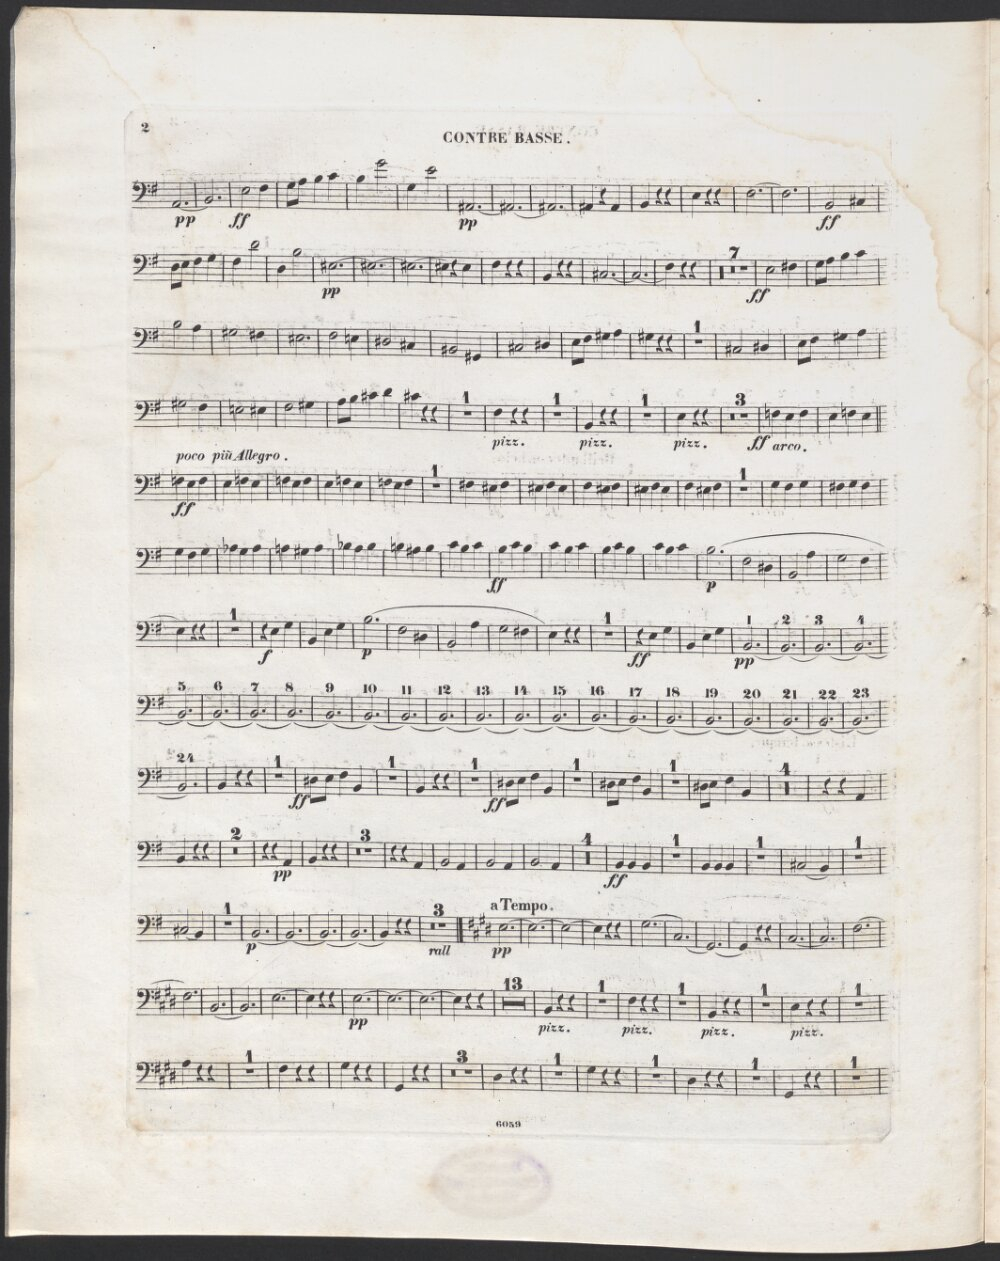 2
CONTRE BASSE.
pp ff pp ff
7
pp ff
1
1 1 1 3
pizz. pizz. pizz. ff arco.
poco più Allegro.
1 1
ff
ff p
1 1 1 2 3 4
f p ff pp
5 6 7 8 9 10 11 12 13 14 15 16 17 18 19 20 21 22 23
24 1 1 1 1 1 4
ff ff
2 3 4 1 1 1
pp ff
1 3 a Tempo.
p rall pp
13 1 1 1 1
pp pizz. pizz. pizz. pizz.
1 3 1 1 1 1
6059